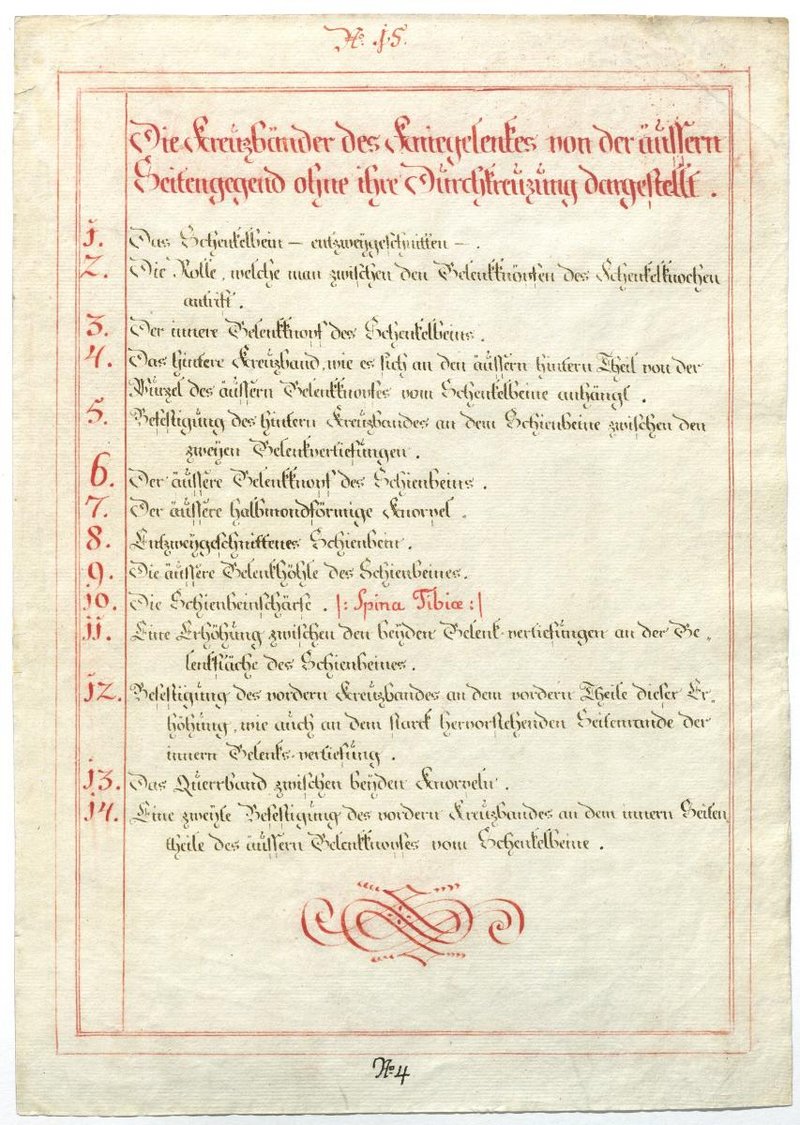 No. 15.
Die Kreuzbänder des Kniegelenkes von der äussern
Seitengegend ohne ihre Durchkreuzung dargestellt.
1. Das Schenkelbein – entzweygeschnitten –.
2. Die Rolle, welche man zwischen den Gelenkknöpfen des Schenkelknochen
antrift.
3. Der innere Gelenkknopf des Schenkelbeins.
4. Das hintere Kreuzband, wie es sich an den äussern hintern Theil von der
Wurzel des äussern Gelenkknopfes vom Schenkelbeine anhängt.
5. Befestigung des hintern Kreuzbandes an dem Schienbeine zwischen den
zweyen Gelenkvertiefungen.
6. Der äussere Gelenkknopf des Schienbeins.
7. Der äussere halbmondförmige Knorpel.
8. Entzweygeschnittenes Schienbein.
9. Die äussere Gelenkhöhle des Schienbeines.
10. Die Schienbeinschärfe. |: Spina Tibiæ :|
11. Eine Erhöhung zwischen den beyden Gelenk-vertiefungen an der Ge-
lenkfläche des Schienbeines.
12. Befestigung des vordern Kreuzbandes an dem vordern Theile dieser Er-
höhung, wie auch an dem starck hervorstehenden Seitenrande der
innern Gelenks-vertiefung.
13. Das Querrband zwischen beyden Knorpeln.
14. Eine zweyte Befestigung des vordern Kreuzbandes an dem innern Seiten
theile des äussern Gelenkknopfes vom Schenkelbeine.
No. 4